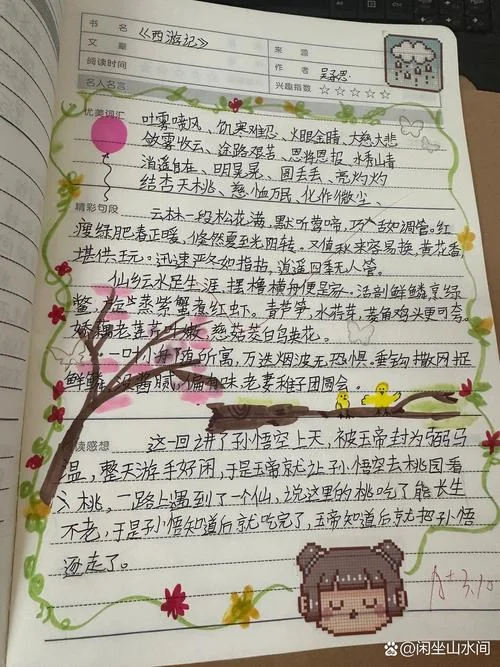 书 名
《西游记》
文 章
来 源
阅读时间
作 者 吴承恩
名人名言
兴趣指数 ☆☆☆☆☆
优美词汇
吐雾喷风、饥寒难忍、火眼金睛、大慈大悲
敛雾收云、途路艰苦、恩将恩报、水秀山青
消遥自在、明晃晃、圆丢丢、亮灼灼
结杏夭桃、慈恤万民、化作微尘、
精彩句段
云林一段松花满,默听莺啼,巧舌如调管。红
瘦绿肥春正暖,倏然夏至光阴转。又值秋来容易换,黄花香,
堪供玩。迅速严冬如指拈,逍遥四季无人管。
仙乡云水足生涯,摆橹横舟便是家。活剖鲜鳞烹绿
鳖,旋蒸紫蟹煮红虾。青芦笋,水荇芽,菱角鸡头更可夸。
娇藕老莲芹叶嫩,慈菇茭白鸟英花。
一叶小舟随所寓,万迭烟波无恐惧。垂钩撒网捉
鲜鳞,没酱腻,偏有味,老妻稚子团圆会。
阅读感想
这一回讲了孙悟空上天,被玉帝封为弼马
温,整天游手好闲,于是玉帝就让孙悟空去桃园看
桃,一路上遇到了一个仙,说这里的桃吃了能长生
不老,于是孙悟知道后就吃完了,玉帝知道后就把孙悟
逐走了。
A+
闲坐山水间